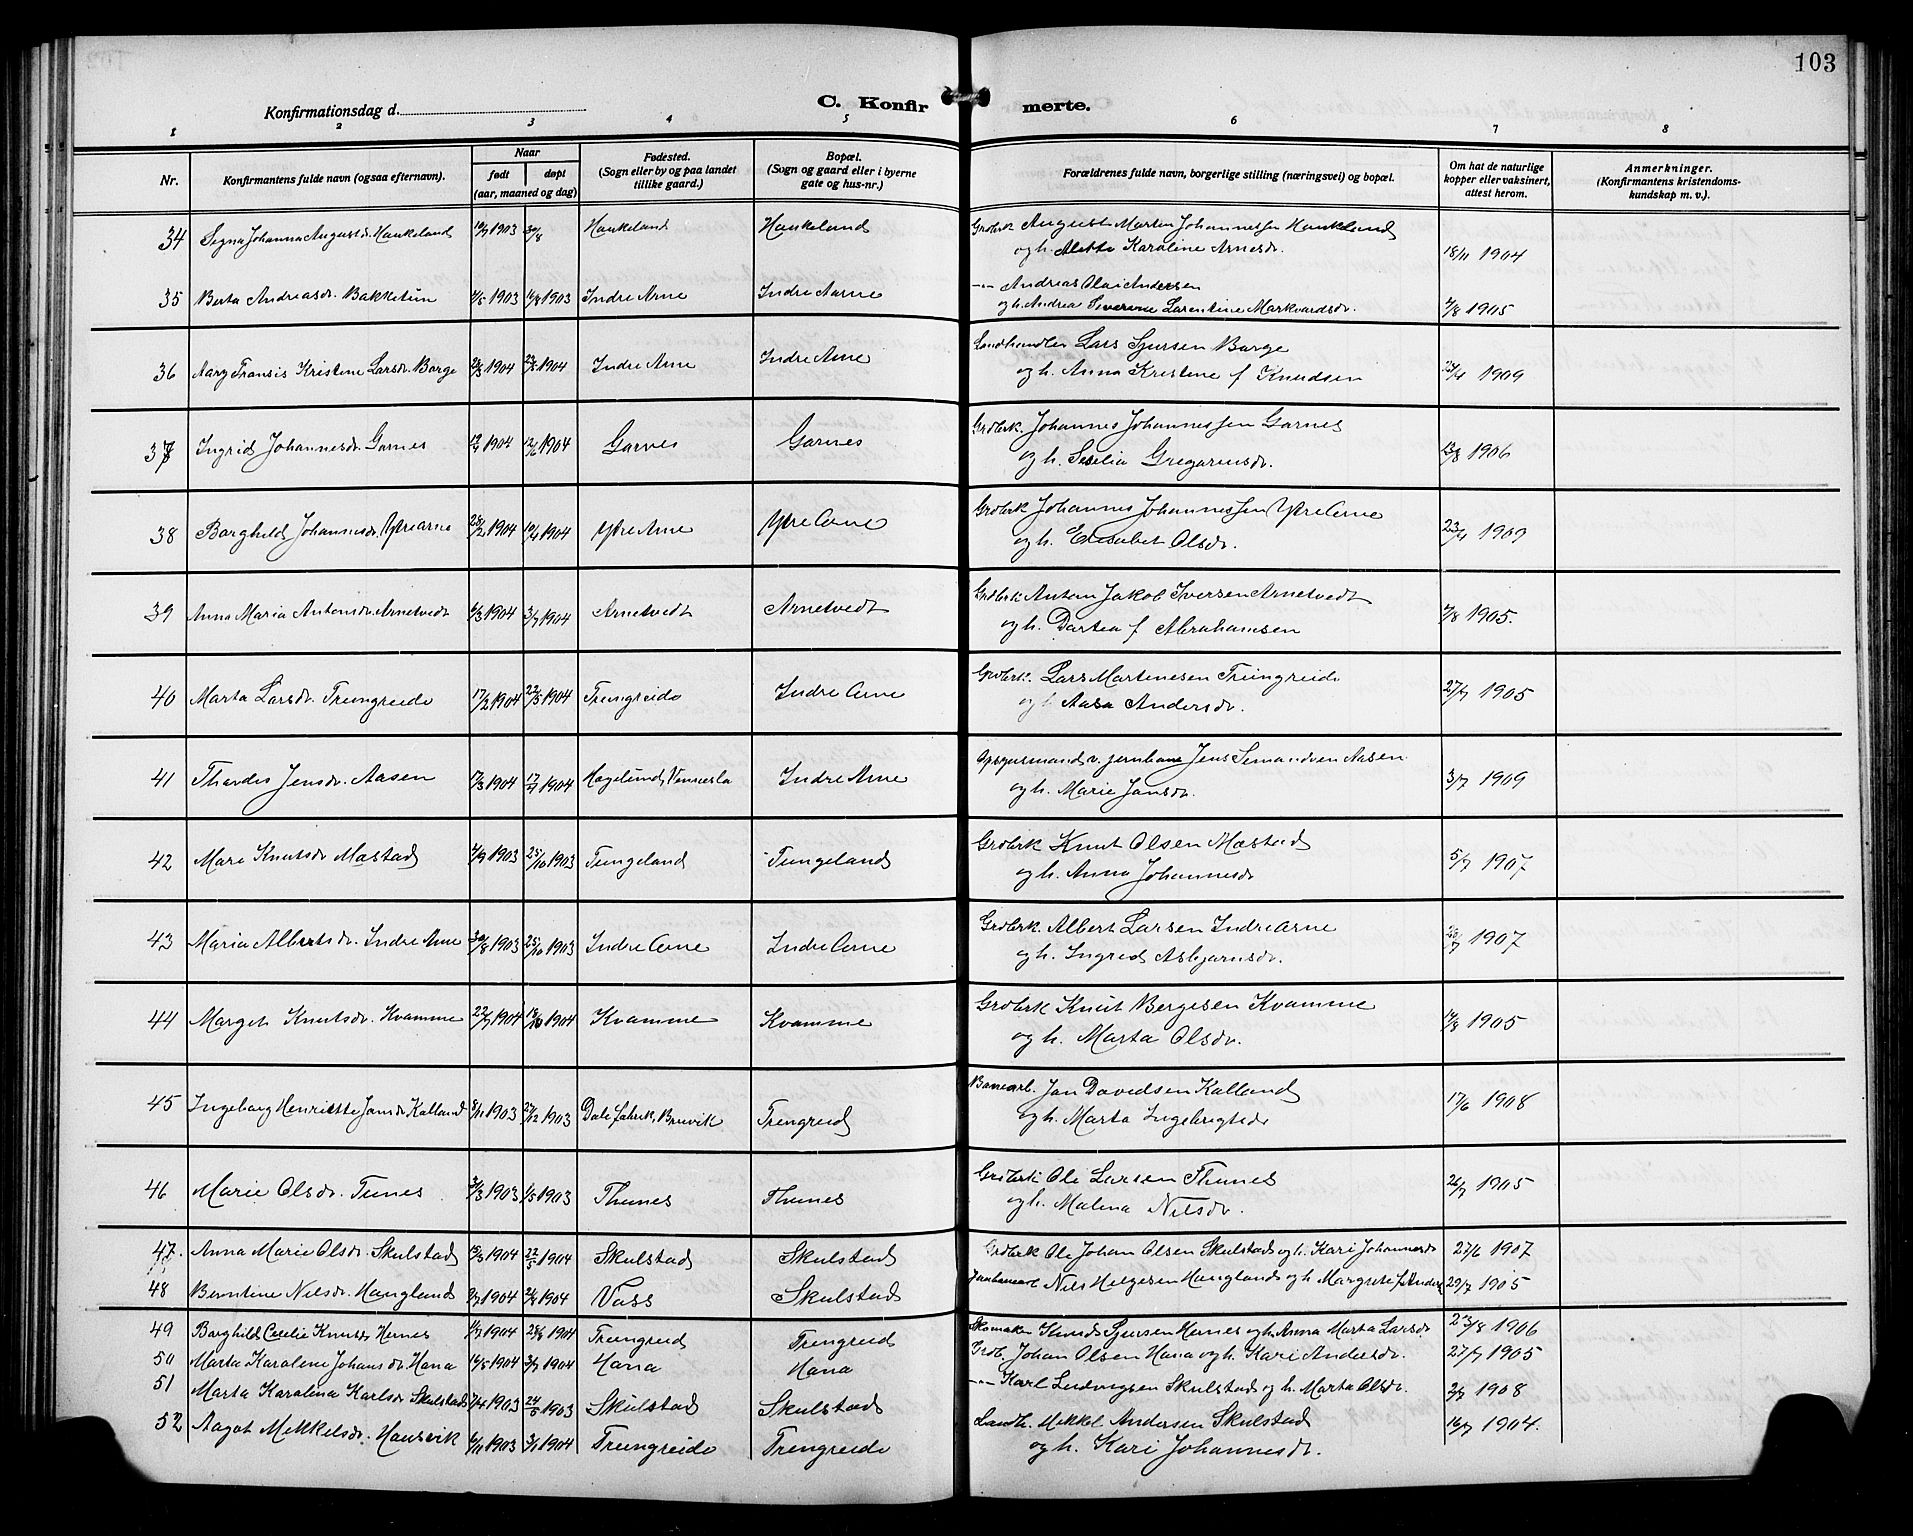 103
Konfirmationsdag d.
C. Konfirmerte.
1 2 3 4 5 6 7 8
Nr. Konfirmantens fulde navn (ogsaa efternavn). Naar født døpt (aar, maaned og dag) Fødested. (Sogn eller by og paa landet tillike gaard.) Bopæl. (Sogn og gaard eller i byerne gate og hus-nr.) Forældrenes fulde navn, borgerlige stilling (næringsvei) og bopæl. Om hat de naturlige kopper eller vaksinert, attest herom. Anmerkninger. (Konfirmantens kristendomskundskap m. v.).
34 Signa Johanna Augustdr. Haukeland 19/7 1903 30/8 Haukeland Haukeland Grdbrk August Martin Johannessen Haukland
og h. Alette Karoline Arnesdr. 18/11 1904
35 Berta Andreasdr. Bakketun 4/5 1903 16/8 1903 Indre Arne Indre Aarne -"- Andreas Olai Andersen
og h. Andrea Severine Larentine Markvardsdr. 4/8 1905
36 Aary Fransis Kristine Larsdr. Borge 28/3 1904 23/5 1904 Indre Arne Indre Arne Landhandler Lars Sjursen Borge
og h. Anna Kristine f Knudsen 23/4 1909
37 Ingrid Johannesdr. Garnes 12/4 1904 12/6 1904 Garnes Garnes Grdbrk. Johannes Johannessen Garnes
og h. Sesilia Gregoriusdr. 13/8 1906
38 Borghild Johannesdr. Ytrearne 28/2 1904 10/4 1904 Ytre Arne Ytre Arne Grdbrk Johannes Johannessen Ytre Arne
og h. Elisabet Olsdr. 23/4 1909
39 Anna Maria Antonsdr. Arnetvedt 6/3 1904 3/7 1904 Arnetvedt Arnetvedt Grdbrk. Anton Jakob Iversen Arnetvedt
og h. Dortea f Abrahamsen 7/8 1905.
40 Marta Larsdr. Trengreide 17/2 1904 22/5 1904 Trengreide Indre Arne Grdbrk. Lars Martinesen Trengreide
og h Aasa Andersdr. 27/7 1905
41 Thordis Jensdr. Aasen 17/3 1904 17/4 1904 Hægeland, Vennesla Indre Arne Opsynsmand v. jernbane Jens Aasen
og h. Marie Jansdr. 3/7 1909
42 Mari Knutsdr. Mæstad 4/9 1903 25/10 1903 Tungeland Tungeland Grdbrk Knut Olsen Mæstad
og h. Anna Johannesdr 5/7 1907
43 Maria Albertsdr. Indre Arne 30/8 1903 25/10 1903 Indre Arne Indre Arne Grdbrk. Albert Larsen Indrearne
og h. Ingrid Asbjørnsdr. 1907
44 Margit Knutsdr. Kvamme 22/7 1904 1904 Kvamme Kvamme Grdbrk Knut Bergesen Kvamme
og h. Marta Olsdr. 14/8 1905
45 Ingeborg Henriette Jansdr Kalland 8/11 1903 27/12 1903 Dale fabrik, Bruvik Trengreid Banearb. Jan Davidsen Kalland
og h. Marta Ingebrigtsdr 17/6 1908
46 Marie Olsdr. Tunes 3/3 1903 1/5 1903 Thunes Thunes Grdbrk. Ole Larsen Thunes
og h. Malena Nilsdr. 26/7 1905
47. Anna Marie Olsdr. Skulstad 15/3 1904 22/5 1904 Skulstad Skulstad Grdbrk Ole Johan Olsen Skulstad og h. Kari Johannesdr 27/6 1907
48 Berntine Nilsdr. Haugland 1904 1904 Voss Skulstad Nils Helgesen Haugland og h. Margrete f Anders 29/7 1905
49 Borghild Cecelie Knutsdr Hernes 1/2 1904 23/6 1904 Trengreid Trengreid Skomaker Knud Sjursen Hernes og h. Anna Marta Larsdr 23/8 1906
50 Marta Karolene Johansdr. Hana 16/5 1904 3/7 1904 Hana Hana Grdb. Johan Olsen Hana og h. Kari Andersdr. 27/7 1905
51 Marta Karolina Karlsdr Skulstad 7/4 1903 24/5 1903 Skulstad Skulstad -"- Karl Ludvigsen Skulstad og h. Marta Olsdr. 2/7 1908
52 Aagot Mikkelsdr. Hausvik 6/11 1903 3/1 1904 Trengreide Trengreide Landh. Mikkel Andersen Skulstad
og h. Kari Johannesdr. 16/7 1904.